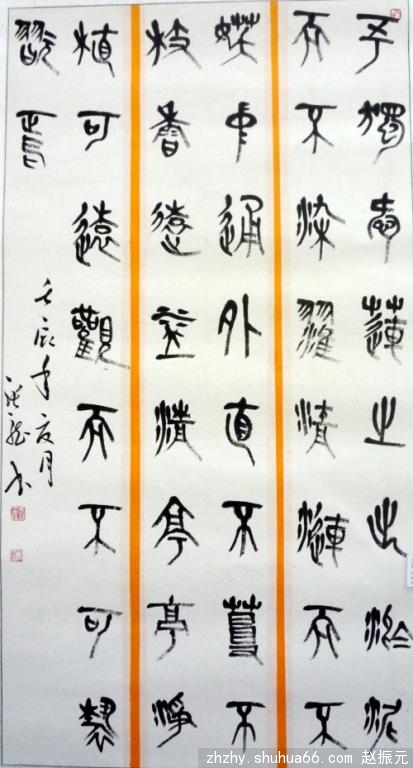 予獨愛蓮之出淤泥
而不染濯清漣而不
妖中通外直不蔓不
枝香遠益清亭亭淨
植可遠觀而不可褻
翫焉
壬辰年夏月
书
zhzhy.shuhua66.com 赵振元